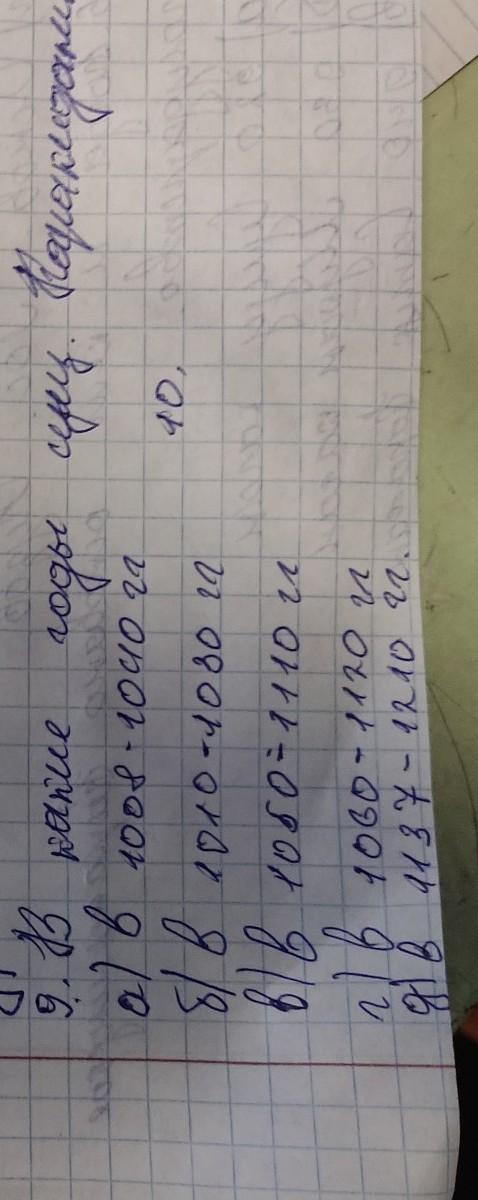 9. В какие годы сущ. Караханидами
а) в 1008-1040 гг
10.
б) в 1010-1030 гг
в) в 1050-1110 гг
г) в 1030-1120 гг
д) в 1137-1210 гг.